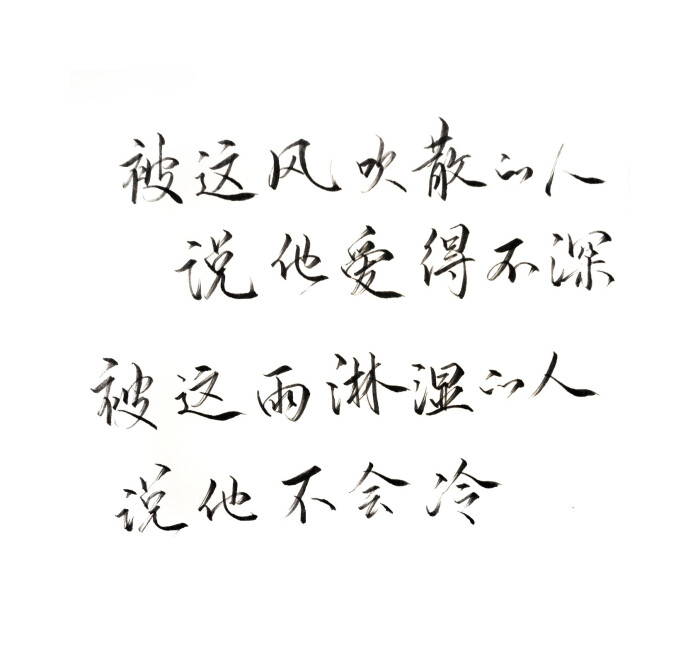 被这风吹散的人
说他爱得不深
被这雨淋湿的人
说他不会冷